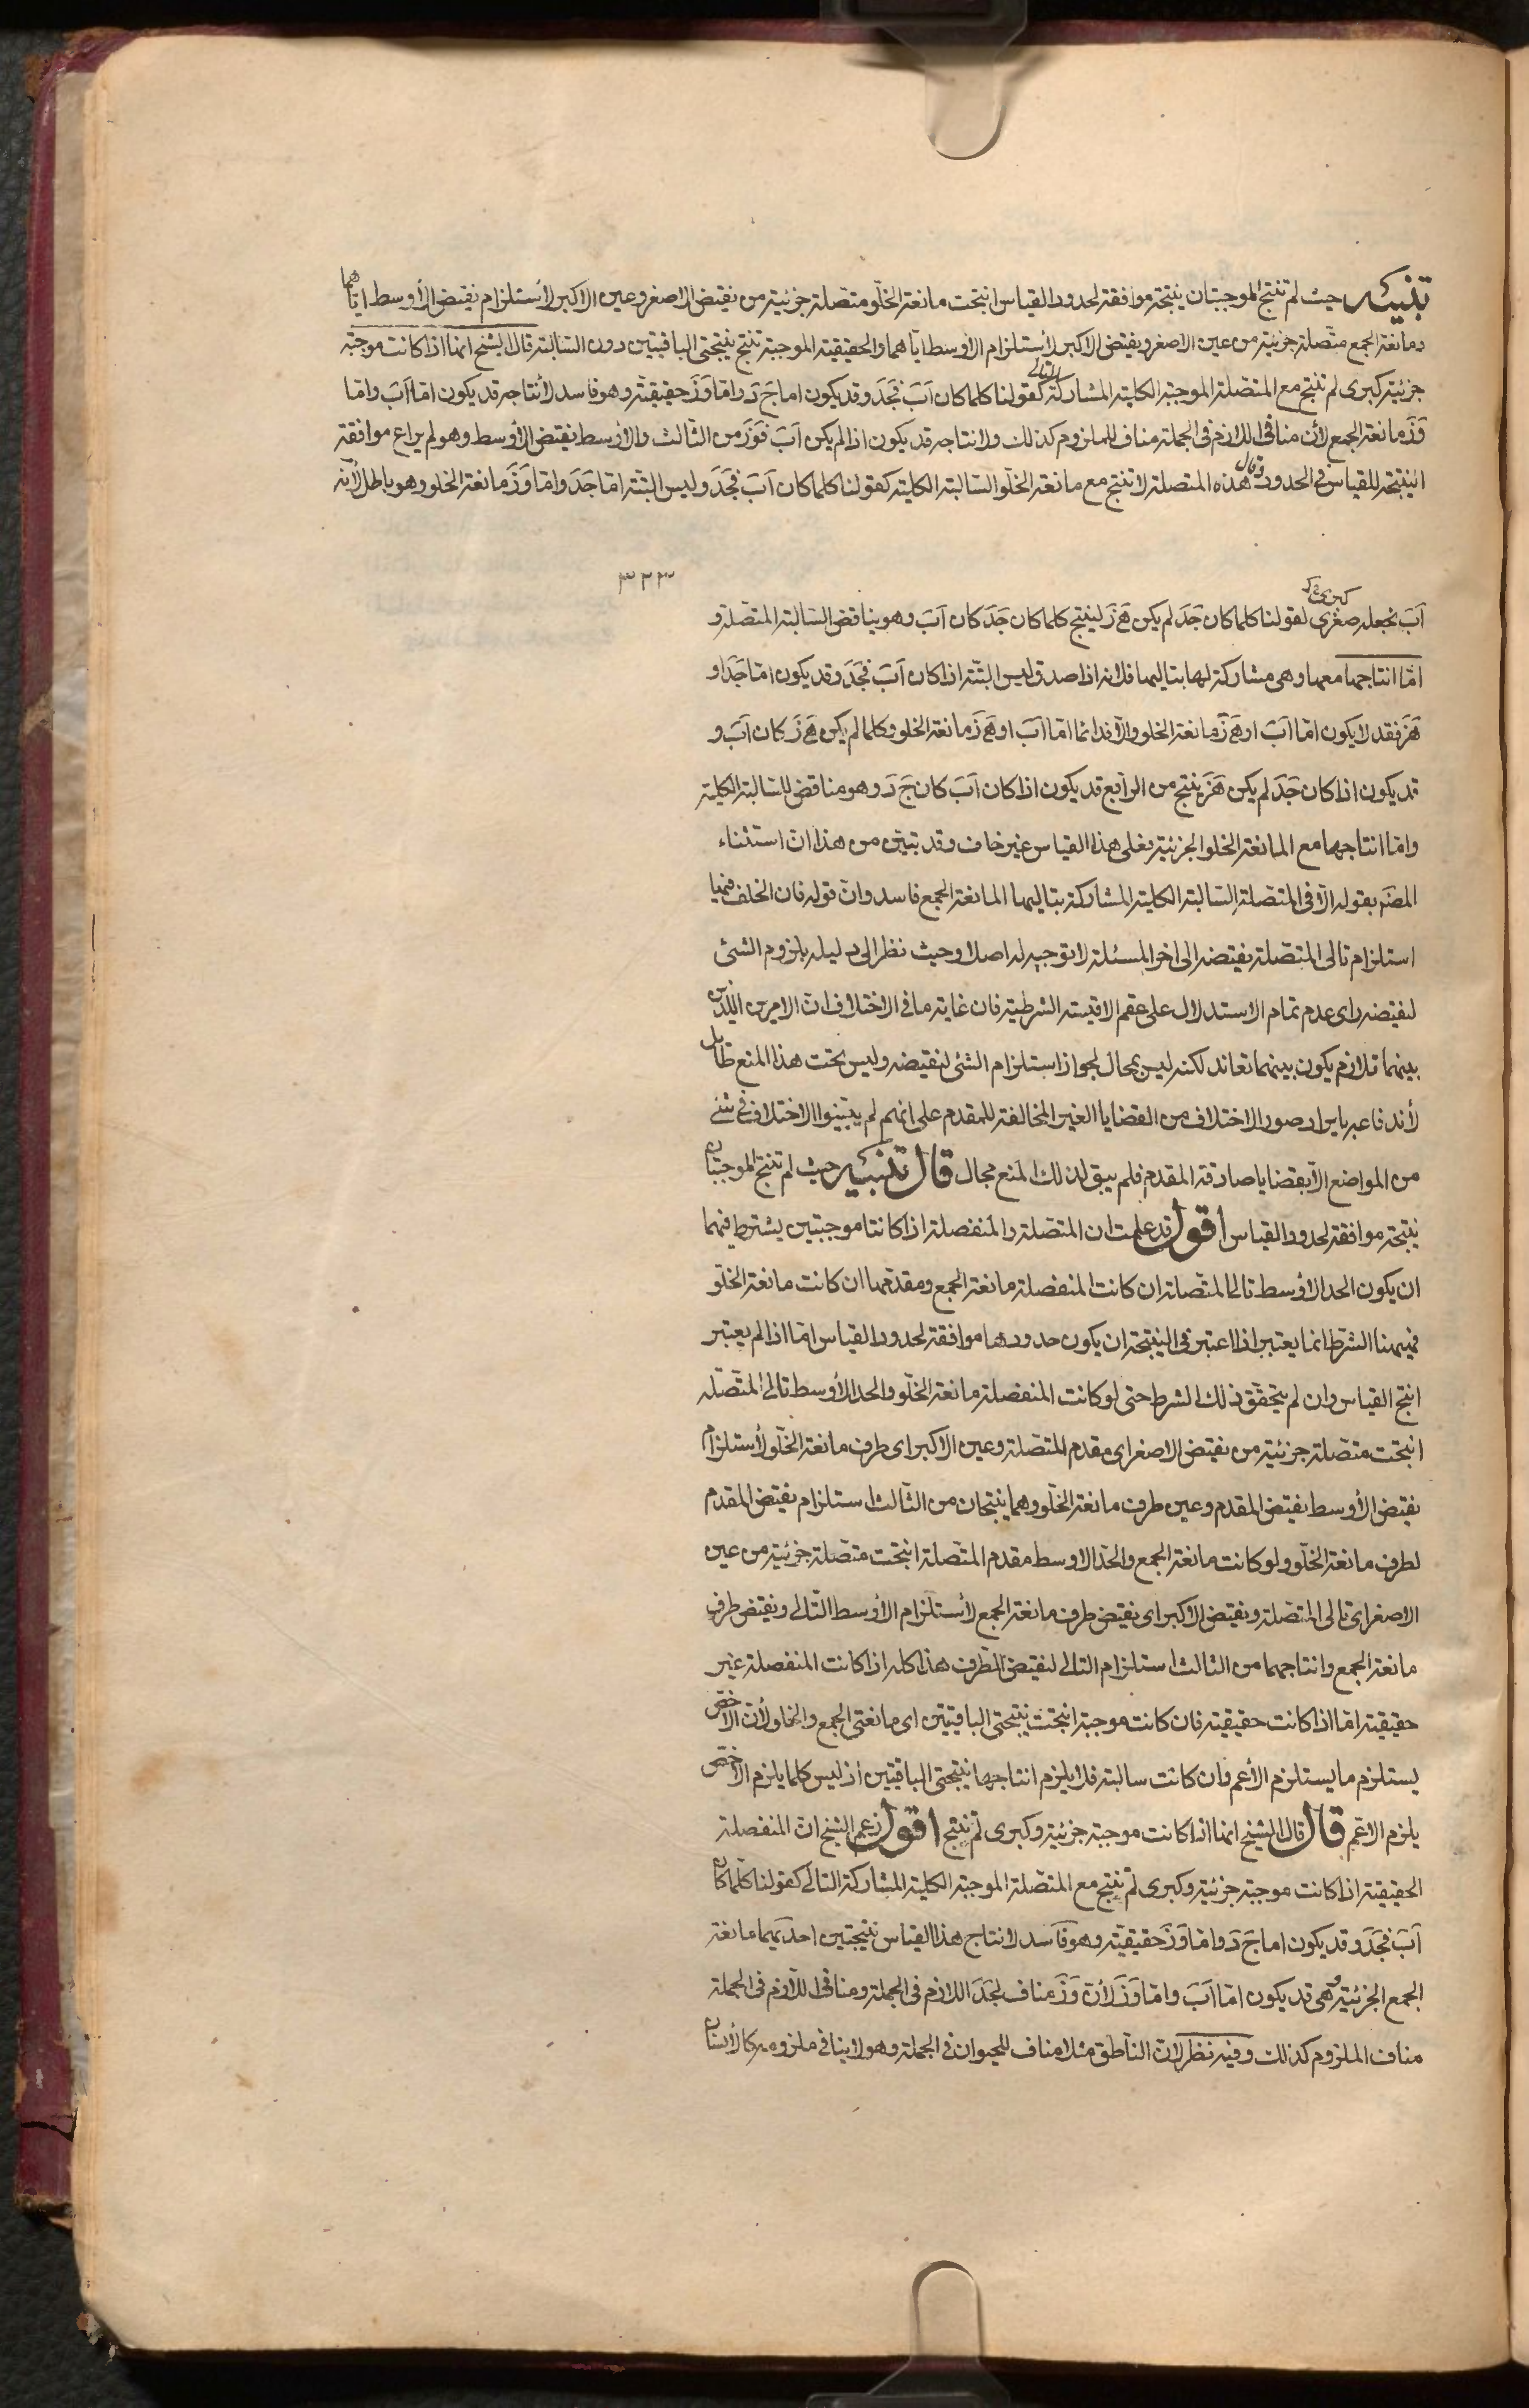 تنبيه حيث لم تنتج الموجبتان نتيجة موافقة لحدود القياس انتجت مانعة الخلو متصلة جزئية من نقيض الاصغر وعين الاكبر لأستلزام نقيض الأوسط اياهما
ومانعة الجمع متصلة جزئية من عين الاصغر ونقيض الاكبر لأستلزام الأوسط اياهما والحقيقية الموجبة تنتج نتيجتى الباقيتين دون السالبة قال الشيخ انما اذا كانت موجبة
جزئية كبرى لم تنتج مع المتصلة الموجبة الكلية المشاركة التالى كقولنا كلما كان آب فجد وقد يكون اما ج د واما وز حقيقية وهو فاسد لأنتاجه قد يكون اما آب واما
وز مانعة الجمع لأن منافى اللازم فى الجملة مناف للملزوم كذلك ولانتاجه قد يكون اذا لم يكن آب فوز من الثالث والاوسط نقيض الأوسط وهو لم يراع موافقة
النتيجة للقياس فى الحدود وقال هذه المتصلة لا تنتج مع مانعة الخلو السالبة الكلية كقولنا كلما كان آب فجد وليس البتة اما جد واما وز مانعة الخلو وهو باطل لأنه
٣٢٣
آب نجعله صغرى كبرى لقولنا كلما كان جد لم يكن هز لينتج كلما كان جد كان آب وهو يناقض السالبة المتصلة و
اما انتاجها معها وهى مشاركة لها بتاليها فلانه اذا صدق ليس البتة اذا كان آب فجد وقد يكون اما جد او
هز فقد لا يكون اما آب او هز مانعة الخلو والا فدائما اما آب او هز مانعة الخلو وكلما لم يكن هز كان آب و
قد يكون اذا كان جد لم يكن هز ينتج من الرابع قد يكون اذا كان آب كان ج د وهو مناقض للسالبة الكلية
واما انتاجها مع المانعة الخلو الجزئية فعلى هذا القياس غير خاف وقد تبين من هذا ان استثناء
المصنّه بقوله الا فى المتصلة السالبة الكلية المشاركة بتاليها المانعة الجمع فاسد وان قوله فان الخلف فيها
استلزام تالى المتصلة نقيضه الى اخر المسئلة لا توجيه له اصلا وحيث نظر الى دليله بلزوم الشئ
لنقيضه راى عدم تمام الاستدلال على عقم الاقيسة الشرطية فان غاية ما فى الاختلاف ان الامرين اللذين
بينهما تلازم يكون بينهما تعاند لكنه ليس بمحال لجواز استلزام الشئ لنقيضه وليس تحت هذا المنع طائل
لأندفاعه بايراد صور الاختلاف من القضايا الغير المخالفة للمقدم على انهم لم يبينوا الاختلاف فى شئ
من المواضع الا بقضايا صادقة المقدم فلم يبق لذلك المنع مجال قال تنبيه حيث لم تنتج الموجبتان
نتيجة موافقة لحدود القياس اقول قد علمت ان المتصلة والمنفصلة اذا كانتا موجبتين يشترط فيهما
ان يكون الحد الأوسط تالى المتصلة ان كانت المنفصلة مانعة الجمع ومقدمها ان كانت مانعة الخلو
فهيهنا الشرط انما يعتبر اذا اعتبر فى النتيجة ان يكون حدودها موافقة لحدود القياس اما اذا لم يعتبر
انتج القياس وان لم يتحقق ذلك الشرط حتى لو كانت المنفصلة مانعة الخلو والحد الأوسط تالى المتصلة
انتجت متصلة جزئية من نقيض الاصغر اى مقدم المتصلة وعين الاكبر اى طرف مانعة الخلو لأستلزام
نقيض الأوسط نقيض المقدم وعين طرف مانعة الخلو وهما ينتجان من الثالث استلزام نقيض المقدم
لطرف مانعة الخلو ولو كانت مانعة الجمع والحد الاوسط مقدم المتصلة انتجت متصلة جزئية من عين
الاصغر اى تالى المتصلة ونقيض الاكبر اى نقيض طرف مانعة الجمع لأستلزام الأوسط التالى ونقيض طرف
مانعة الجمع وانتاجهما من الثالث استلزام التالى لنقيض الطرف هذا كله اذا كانت المنفصلة غير
حقيقية اما اذا كانت حقيقية فان كانت موجبة انتجت نتيجتى الباقيتين اى مانعتى الجمع والخلو لأن الاخص
يستلزم ما يستلزم الأعم وان كانت سالبة فلا يلزم انتاجها نتيجتى الباقيتين اذ ليس كلما يلزم الاخص
يلزم الاعم قال قال الشيخ انها اذا كانت موجبة جزئية وكبرى لم تنتج اقول زعم الشيخ ان المنفصلة
الحقيقية اذا كانت موجبة جزئية وكبرى لم تنتج مع المتصلة الموجبة الكلية المشاركة التالى كقولنا كلما كان
آب فجد وقد يكون اما ج د واما وز حقيقية وهو فاسد لانتاج هذا القياس نتيجتين احديهما مانعة
الجمع الجزئية وهى قد يكون اما آب واما وز لأن وز مناف لجد اللازم فى الجملة ومنافى اللازم فى الجملة
مناف الملزوم كذلك وفيه نظر لان الناطق مثلا مناف للحيوان فى الجملة وهو لا ينافى ملزومه كالأنسان